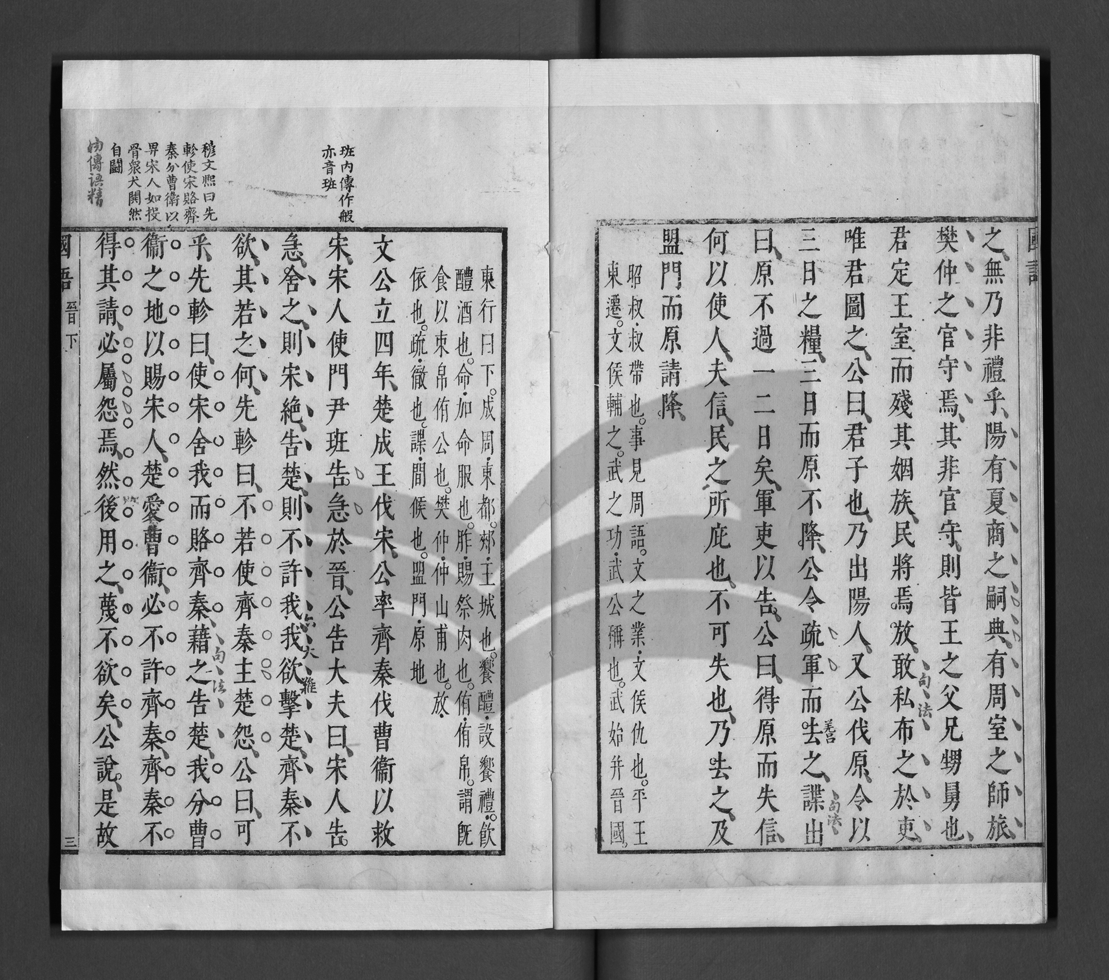 國語
之無乃非禮乎陽有夏商之嗣典有周室之師旅
樊仲之官守焉其非官守則皆王之父兄甥舅也
君定王室而殘其姻族民將焉放敢私布之於吏
唯君圖之公曰君子也乃出陽人又公伐原令以
三日之糧三日而原不降公令疏軍而去之諜出
曰原不過一二日矣軍吏以告公曰得原而失信
何以使人夫信民之所庇也不可失也乃去之及
盟門而原請降
昭叔叔帶也事見周語文之業文侯仇也平王
東遷文侯輔之武之功武公稱也武始并晉國
句法
句法
東行曰下成周東都郟王城也饗醴設饗禮飲
醴酒也命加命服也胙賜祭肉也侑侑帛謂既
食以束帛侑公也樊仲仲山甫也放
依也疏徹也諜間候也盟門原地
文公立四年楚成王伐宋公率齊秦伐曹衞以救
宋宋人使門尹班告急於晉公告大夫曰宋人告
急舍之則宋絕告楚則不許我我欲擊楚齊秦不
欲其若之何先軫曰不若使齊秦主楚怨公曰可
乎先軫曰使宋舍我而賂齊秦藉之告楚我分曹
衞之地以賜宋人楚愛曹衞必不許齊秦齊秦不
得其請必屬怨焉然後用之蔑不欲矣公說是故
國語 晉下 三
班內傳作般
亦音班
穆文熙曰先
軫使宋賂齊
秦分曹衞以
畀宋人如投
骨衆犬鬨然
自鬭
內傳語精
句法